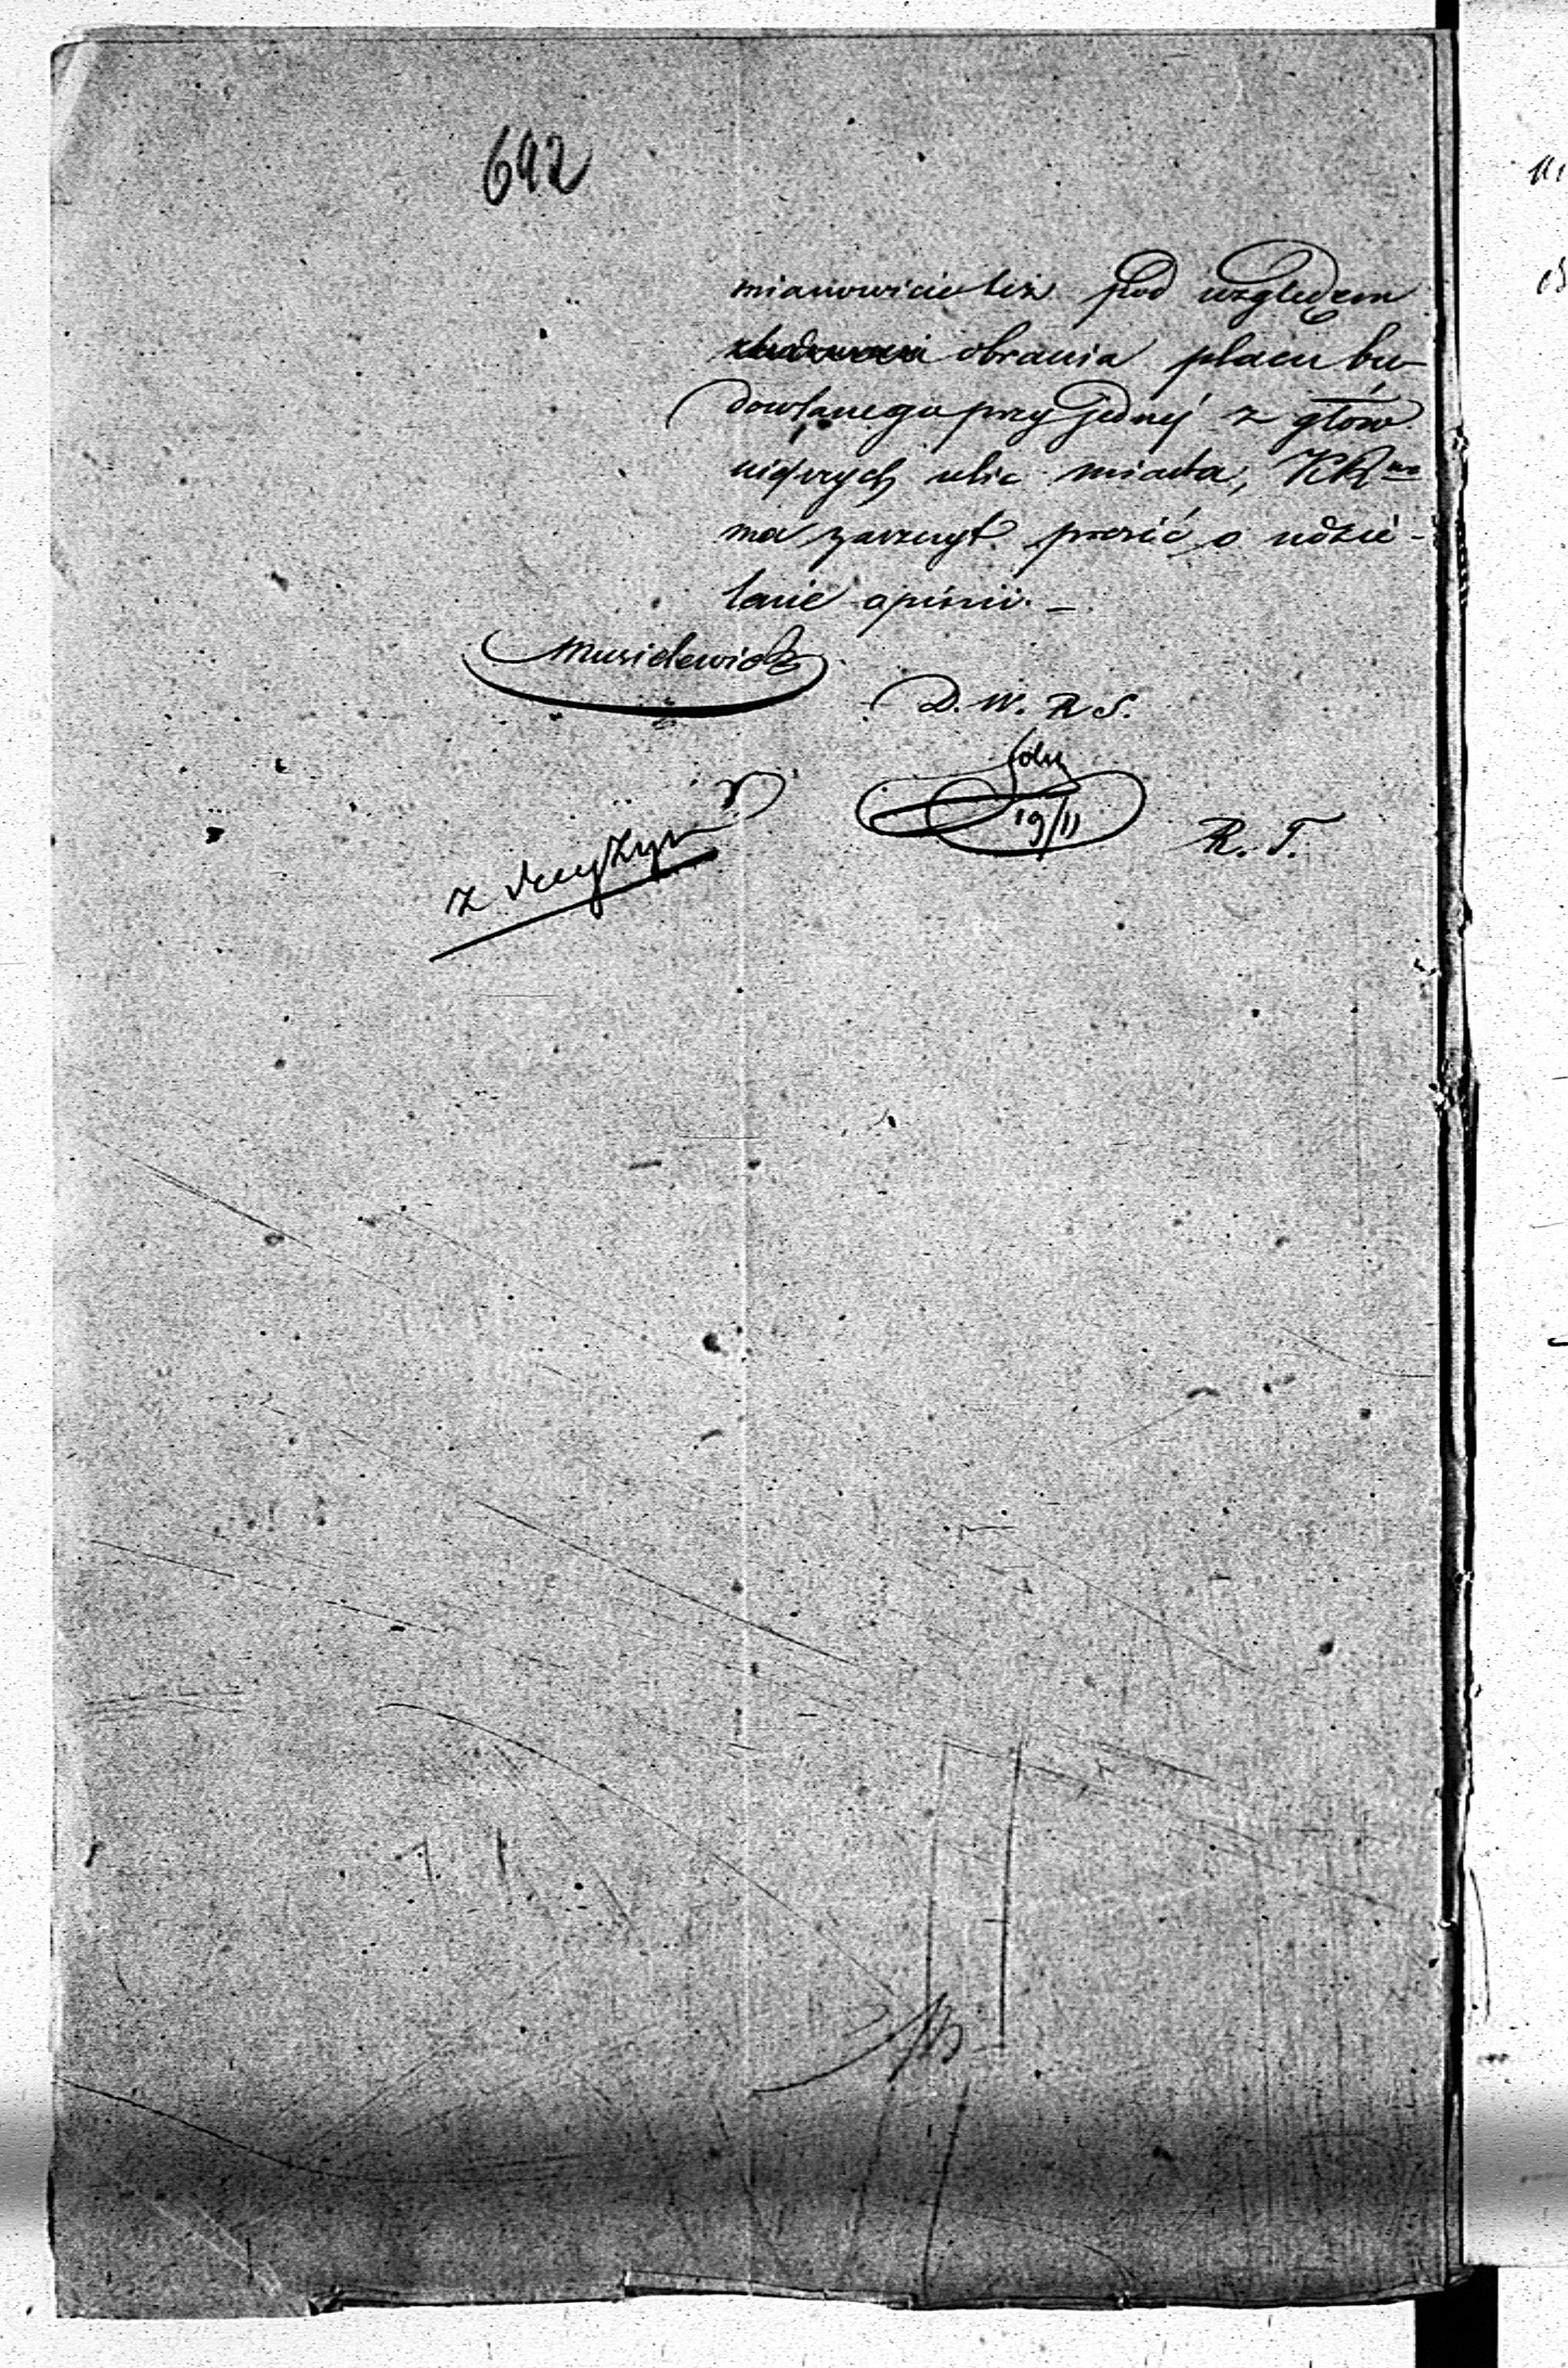 692
mianowicie też pod względem
obrania placu bu-
dowlanego przy jednej z głów
niejszych ulic miasta, KR
ma zaszczyt prosić o udzie-
lenie opinii. —
Musielewicz
D. W. R S.
19/11
R. T.
z decyzyi